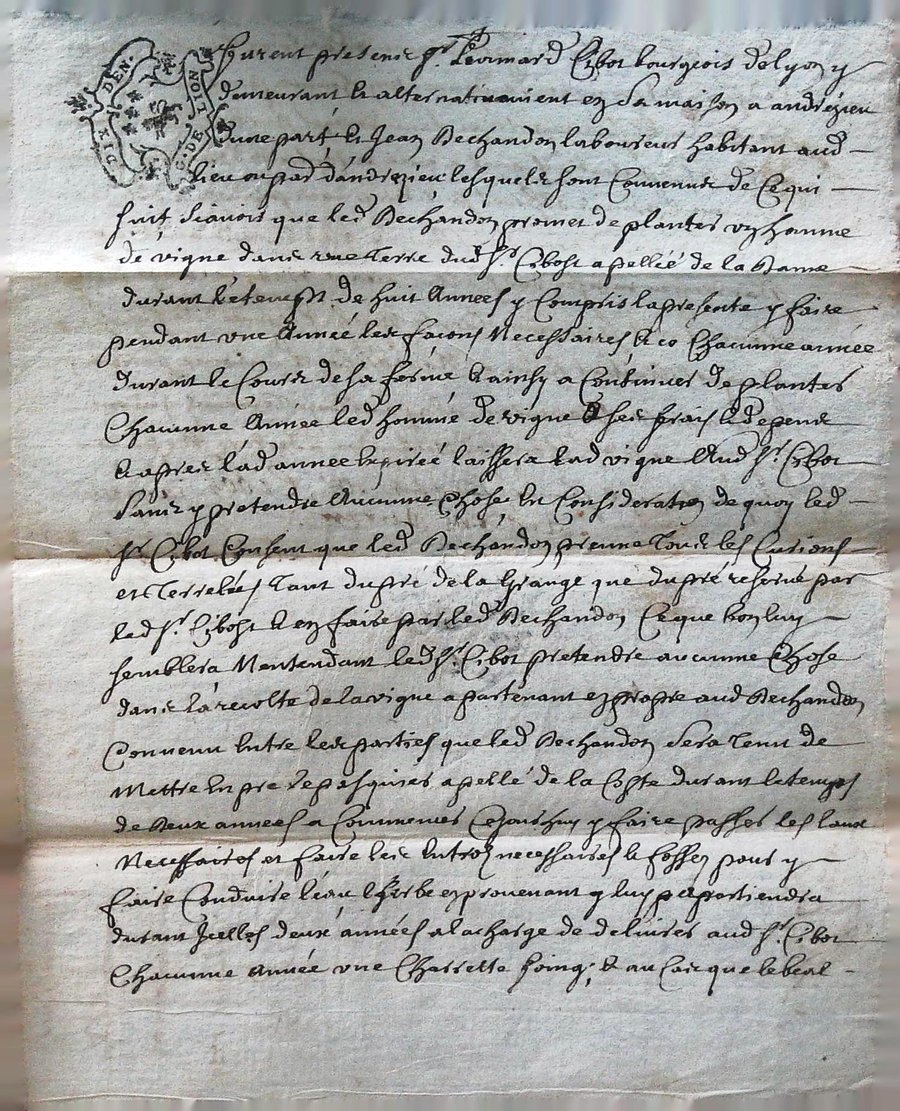 DIX DEN. G. DE LION
furent presens sr. Leonnard Cibot bourgeois de lyon y
demeurant & alternativement en sa maison a andrezieu
dune part, & Jean Dechandon laboureur habitant aud
lieu dandrezieu lesquels sont Convenus de Ce qui
suit sçavoir que led Dechandon promet de planter un homme
de vigne dans une Terre dud sr. Cibost apellée de la
durant le temps de huit Années y Compris la presente y faire
pendant une Année les façons Necessaires & Chacunne année
durant le Cours de sa ferme & ainsy a Continuer de planter
Chacunne Année led homme de vigne a ses frais & depens
& apres lad année Expirée laissera lad vigne Aud sr. Cibot
sans y pretendre Aucunne Chose En Consideration de quoy led
sr. Cibot Consent que led Dechandon prenne Tous les Curions
et Terrelées Tant du pré de la Grange que du pré reservé par
led sr. Cibost & en faire par led Dechandon Ce que bon luy
semblera Nentendant led sr. Cibot pretendre aucunne Chose
dans la recolte de la vigne apartenant en propre aud Dechandon
Convenu Entre les parties que led Dechandon sera Tenu de
Mettre En pre le pasquier apellé de la Coste durant le temps
de deux années a Commencer Cejourdhuy y faire passer les
Necessaires et faire les necessaires & fossez pour y
faire Conduire leau lherbe en provenant luy apartiendra
durant Icelles deux années a la charge de delivrer aud sr. Cibot
Chacunne Année une Charrette foing, & au Cas que le beal